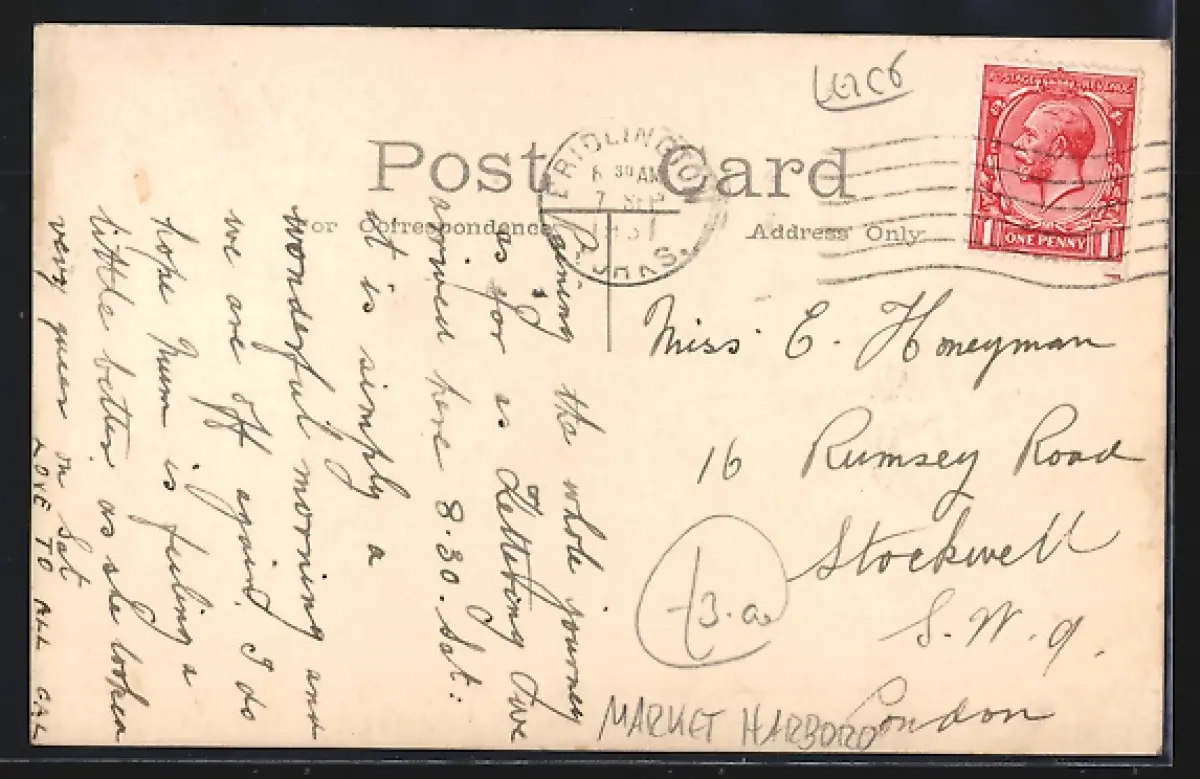 Post Card
For Correspondence
Address Only
BRIDLINGTON
6 30 AM
7 SEP
1931
YORKS.
POSTAGE REVENUE
ONE PENNY
1 1
LEICS
Miss C. Honeyman
16 Rumsey Road
Stockwell
S. W. 9.
London
MARKET HARBORO
Raining the whole journey
as far as Kettering & we
arrived here 8.30. Sat:
it is simply a
wonderful morning and
we are off again. I do
hope Mum is feeling a
little better as she looked
very queer on Sat
LOVE TO ALL